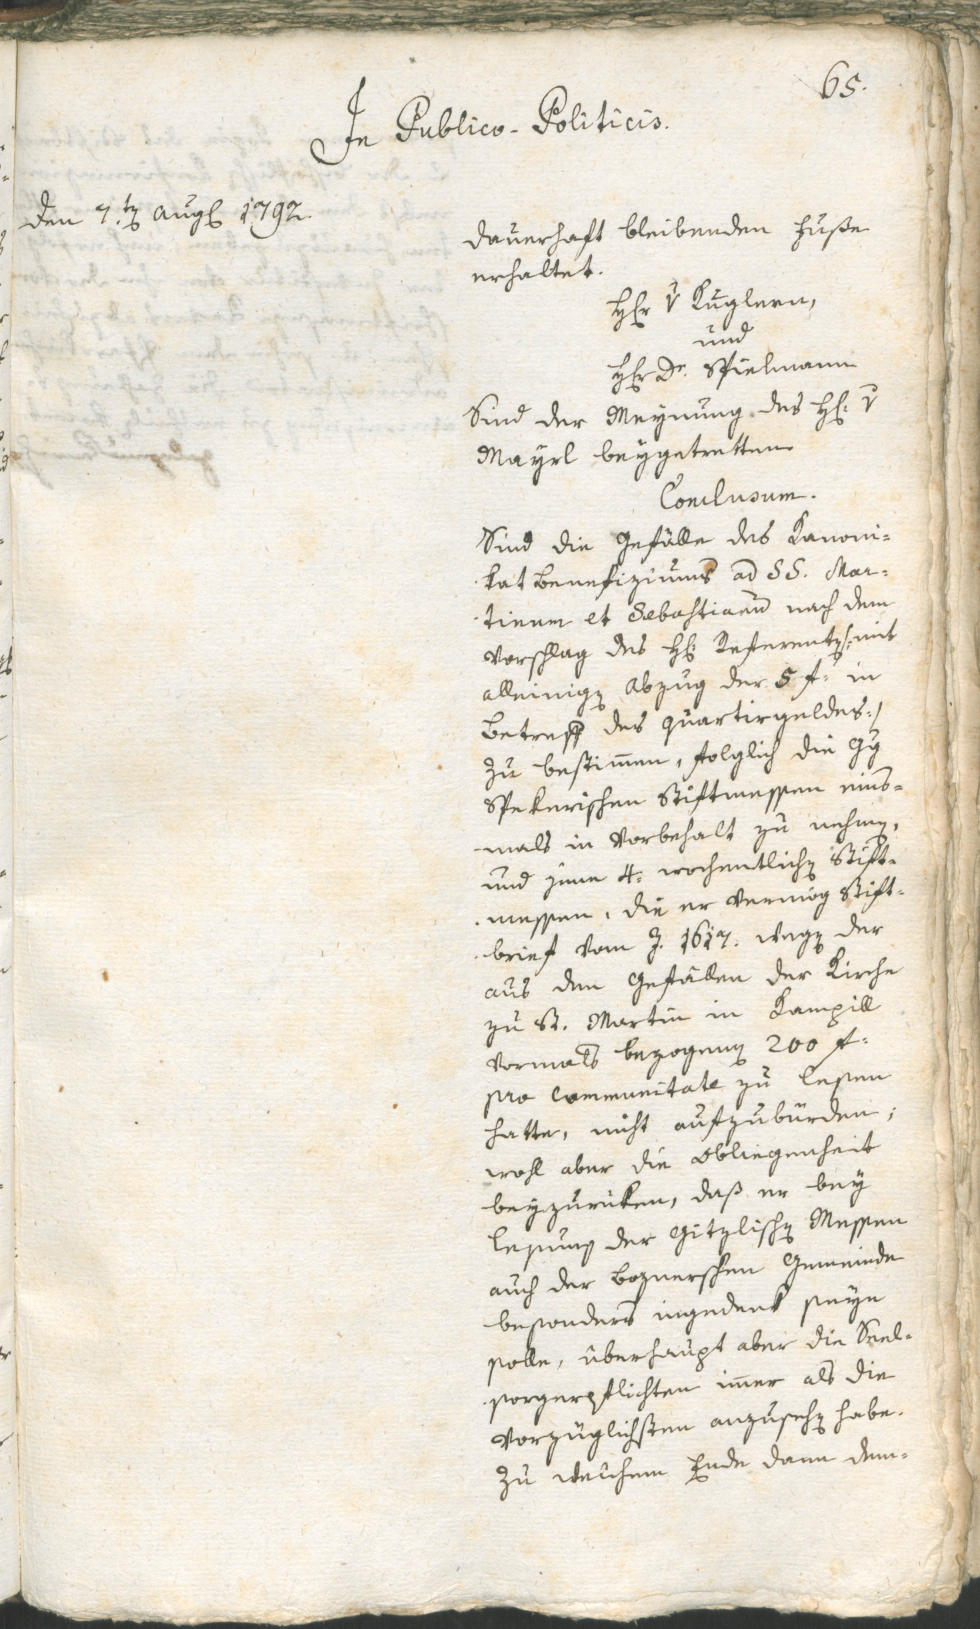 65.
In Publico-Politicis.
Den 7.ten Augst 1792.
dauerhaft bleibenden Fuße
erhaltet.
HEr v Kuglern,
und
HEr Dr. Spielmann
Sind der Meynung des H: v
Mayrl beygetretten
Conclusum.
Sind die Gefälle des Kanoni-
kat Benefiziums ad S S. Mar-
tinum et Sebastianum nach dem
Vorschlag des H: Referenten /:mit
alleinigen Abzug der 5 f: in
Betreff des quartirgeldes:/
zu bestimmen, folglich die
Spekerischen Stiftmessen eins-
mals in Vorbehalt zu nehmen,
und jene 4. wochentlichen Stift-
messen, die er vermög Stift-
brief vom J. 1617. wegen der
aus den Gefällen der Kirche
zu St. Martin in Kampill
vormals bezogenen 200 f:
pro Communitate zu lesen
hatte, nicht aufzubürden;
wohl aber die Obliegenheit
beyzurüken, daß er bey
lesung der Gitzlischen Messen
auch der Boznerschen Gemeinde
besonders ingedenk seyn
solle, überhaupt aber die Seel-
sorgerpflichten immer als die
Vorzüglichsten anzusehen habe.
Zu welchem Ende dann dem-